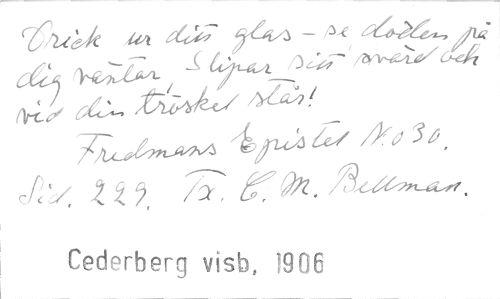 Drick ur ditt glas – se döden på
dig väntar, Slipar sitt svärd och
vid din tröskel står!
Fredmans Epistel No 30.
Sid. 229. Tx. C. M. Bellman.
Cederberg visb, 1906